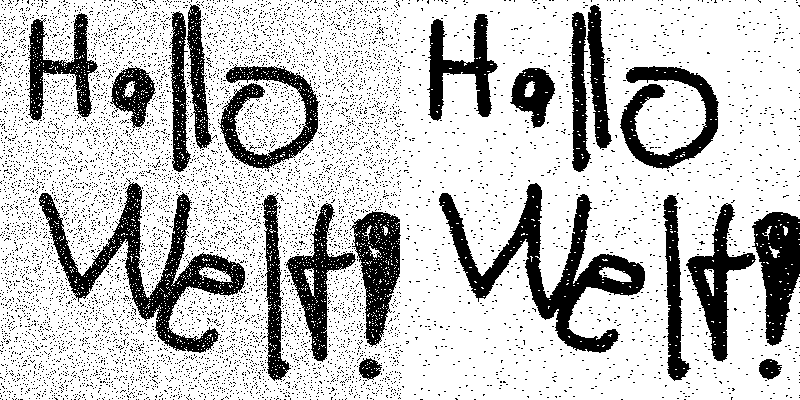 Hallo
Welt!
Hallo
Welt!